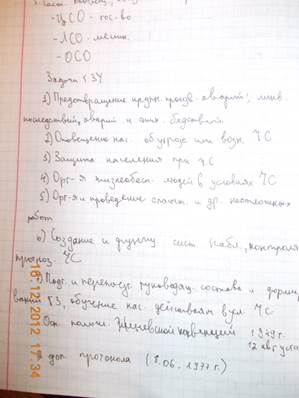 -ЦСО - гос-во
-ЛСО - мечик.
-ОСО
Задачи ГЗУ
1) Предотвращение крупн. произв. аварий; ликв.
последствий, аварий и стих. бедствий.
2) Оповещение нас. об угрозе или возн. ЧС
3) Защита населения при ЧС
4) Орг-я жизнеобесп. людей в условиях ЧС
5) Орг-я и проведение спасат. и др. неотложных
работ
6) Создание и функц. сист. набл., контроля
прогноз. ЧС
Подг. и руководящ. состава и форми
рований ГЗ, обучение нас. действиям в усл. ЧС
Осн. полож. Женевской конвенции 1949 г.
12 августа
доп. протокола (8.06. 1977 г.)
16.12.2012 17:34